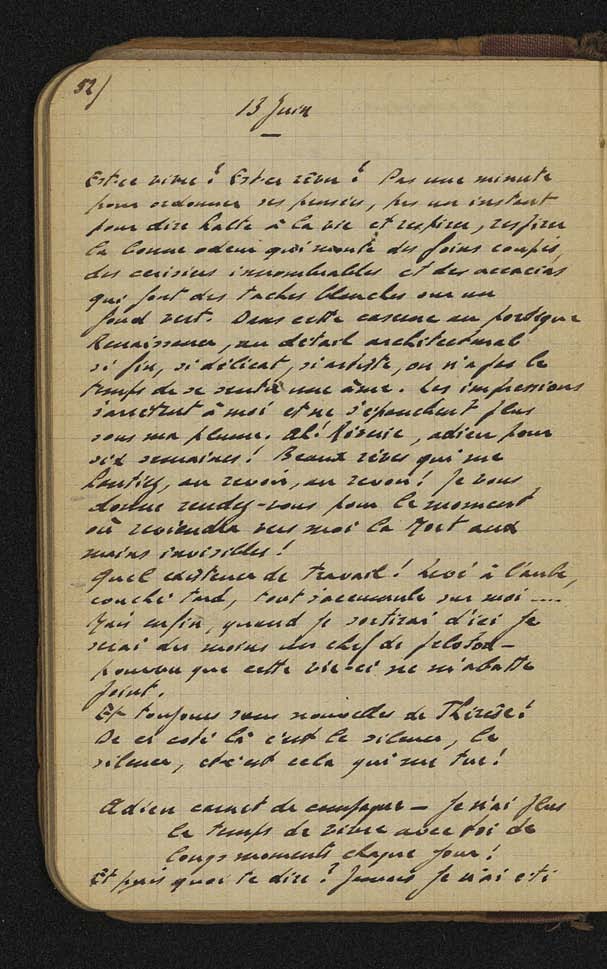 52/
13 Juin
Est-ce vivre ? Est-ce rêver ? Pas une minute
pour ordonner ses pensées, pas un instant
pour dire halte à la vie et respirer, respirer
la bonne odeur qui monte des foins coupés,
des cerisiers innombrables et des accacias
qui font des taches blanches sur un
fond vert. Dans cette caserne au portique
Renaissance, au détail architectural
si fin, si délicat, si artiste, on n'a pas le
temps de se sentir une âme. Les impressions
s'arrêtent à moi et ne s'épanchent plus
sous ma plume. Ah ! Rêverie, adieu pour
six semaines ! Beaux rêves qui me
hantiez, au revoir, au revoir ! Je vous
donne rendez-vous pour le moment
où reviendra vers moi la Mort aux
mains invisibles !
Quel existence de travail ! Levé à l'aube,
couché tard, tout s'accumule sur moi ....
Mais enfin, quand je sortirai d'ici je
serai du moins un chef de peloton —
pourvu que cette vie-ci ne m'abatte
point.
Et toujours sans nouvelles de Thérèse !
De ce coté là c'est le silence, le
silence, et c'est cela qui me tue !
Adieu carnet de campagne — Je n'ai plus
le temps de vivre avec toi de
longs moments chaque jour !
Et puis quoi te dire ? Jamais je n'ai été